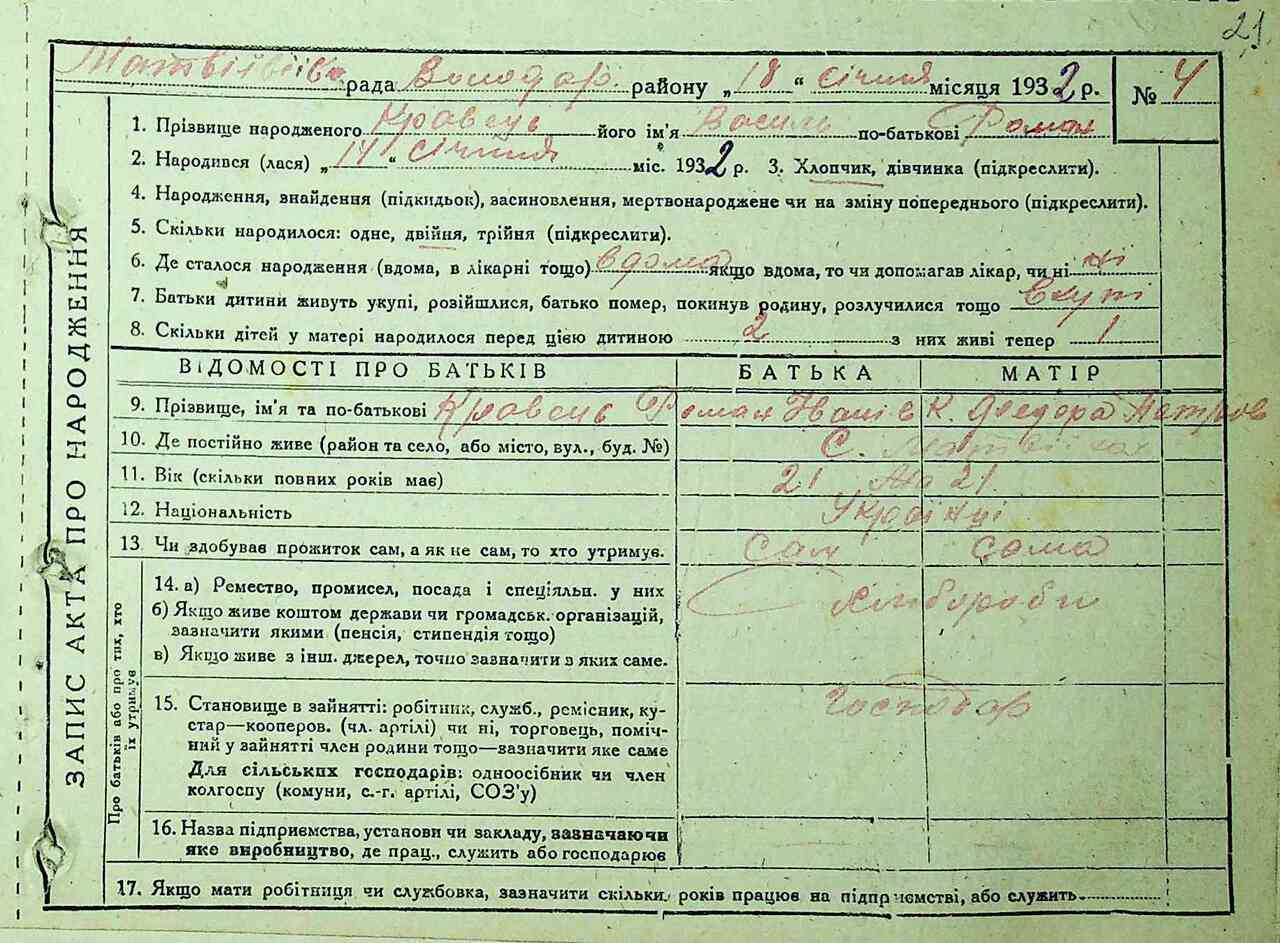 21.
Матвіївк рада Володар. району „18“ січня місяця 1932 р. № 4
1. Прізвище народженого Кравець його ім'я Василь по-батькові Роман
2. Народився (лася) „14“ січня міс. 1932 р. 3. Хлопчик, дівчинка (підкреслити).
4. Народження, знайдення (підкидьок), засиновлення, мертвонароджене чи на зміну попереднього (підкреслити).
5. Скільки народилося: одне, двійня, трійня (підкреслити).
6. Де сталося народження (вдома, в лікарні тощо) вдома якщо вдома, то чи допомагав лікар, чи ні ні
7. Батьки дитини живуть укупі, розійшлися, батько помер, покинув родину, розлучилися тощо Вкупі
8. Скільки дітей у матері народилося перед цією дитиною 2 з них живі тепер 1
ВІДОМОСТІ ПРО БАТЬКІВ БАТЬКА МАТІР
9. Прізвище, ім'я та по-батькові Кравець Роман Іванів К. Федора Петров
10. Де постійно живе (район та село, або місто, вул., буд. №) С. Матвіїха
11. Вік (скільки повних років має) 21 21
12. Національність Українці
13. Чи здобував прожиток сам, а як не сам, то хто утримує. Сам сама
14. а) Ремество, промисел, посада і спеціяльн. у них Хлібороби
б) Якщо живе коштом держави чи громадськ. організацій,
зазначити якими (пенсія, стипендія тощо)
в) Якщо живе з інш. джерел, точно зазначити з яких саме.
15. Становище в зайнятті: робітник, служб., ремісник, ку- Господар
стар—кооперов. (чл. артілі) чи ні, торговець, поміч-
ний у зайнятті член родини тощо—зазначити яке саме
Для сільських господарів: одноосібник чи член
колгоспу (комуни, с.-г. артілі, СОЗ'у)
16. Назва підприємства, установи чи закладу, зазначаючи
яке виробництво, де прац., служить або господарює
17. Якщо мати робітниця чи службовка, зазначити скільки років працює на підприємстві, або служить
ЗАПИС АКТА ПРО НАРОДЖЕННЯ
Про батьків або про тих, хто
їх утримує